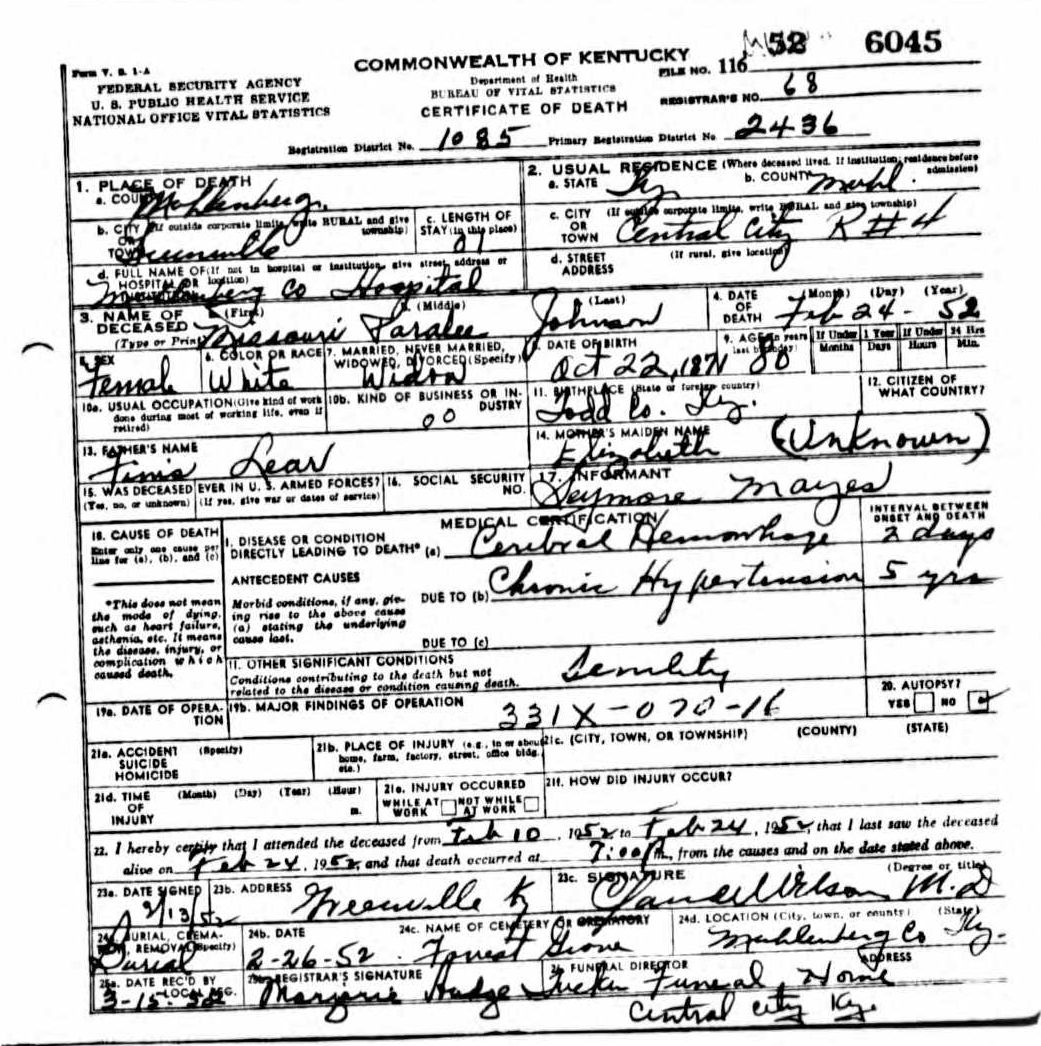 Form V. S. 1-A
FEDERAL SECURITY AGENCY
U. S. PUBLIC HEALTH SERVICE
NATIONAL OFFICE VITAL STATISTICS
COMMONWEALTH OF KENTUCKY
Department of Health
BUREAU OF VITAL STATISTICS
CERTIFICATE OF DEATH
52 6045
FILE NO. 116
REGISTRAR'S NO. 68
Registration District No. 1085 Primary Registration District No. 2436
1. PLACE OF DEATH
a. COUNTY Muhlenberg
b. CITY (If outside corporate limits, write RURAL and give township)
OR TOWN Greenville
c. LENGTH OF STAY (in this place) 01
d. FULL NAME OF (If not in hospital or institution, give street address or location)
HOSPITAL OR INSTITUTION Muhlenberg Co Hospital
2. USUAL RESIDENCE (Where deceased lived. If institution; residence before admission)
a. STATE Ky. b. COUNTY Muhl.
c. CITY (If outside corporate limits, write RURAL and give township)
OR TOWN Central City R#4
d. STREET ADDRESS (If rural, give location)
3. NAME OF DECEASED (Type or Print) (First) (Middle) (Last)
Missouri Paralee Johnson
4. DATE OF DEATH (Month) (Day) (Year)
Feb 24 - 52
5. SEX Female
6. COLOR OR RACE White
7. MARRIED, NEVER MARRIED, WIDOWED, DIVORCED (Specify) Widow
8. DATE OF BIRTH Oct 22, 1871
9. AGE (In years last birthday) 80
If Under 1 Year Months Days
If Under 24 Hrs Hours Min.
10a. USUAL OCCUPATION (Give kind of work done during most of working life, even if retired)
10b. KIND OF BUSINESS OR INDUSTRY 00
11. BIRTHPLACE (State or foreign country) Todd Co. Ky.
12. CITIZEN OF WHAT COUNTRY?
13. FATHER'S NAME Finis Lear
14. MOTHER'S MAIDEN NAME Elizabeth (Unknown)
15. WAS DECEASED EVER IN U. S. ARMED FORCES?
(Yes, no, or unknown) (If yes, give war or dates of service)
16. SOCIAL SECURITY NO.
17. INFORMANT Seymore Mayes
18. CAUSE OF DEATH
Enter only one cause per line for (a), (b), and (c)
*This does not mean the mode of dying, such as heart failure, asthenia, etc. It means the disease, injury, or complication which caused death.
MEDICAL CERTIFICATION
INTERVAL BETWEEN ONSET AND DEATH
I. DISEASE OR CONDITION DIRECTLY LEADING TO DEATH* (a) Cerebral Hemorrhage 2 days
ANTECEDENT CAUSES
Morbid conditions, if any, giving rise to the above cause (a) stating the underlying cause last.
DUE TO (b) Chronic Hypertension 5 yrs
DUE TO (c)
11. OTHER SIGNIFICANT CONDITIONS
Conditions contributing to the death but not related to the disease or condition causing death.
Senility
19a. DATE OF OPERATION
19b. MAJOR FINDINGS OF OPERATION
331X-070-16
20. AUTOPSY?
YES NO
21a. ACCIDENT SUICIDE HOMICIDE (Specify)
21b. PLACE OF INJURY (e.g., in or about home, farm, factory, street, office bldg., etc.)
21c. (CITY, TOWN, OR TOWNSHIP) (COUNTY) (STATE)
21d. TIME OF INJURY (Month) (Day) (Year) (Hour) m.
21e. INJURY OCCURRED
WHILE AT WORK NOT WHILE AT WORK
21f. HOW DID INJURY OCCUR?
22. I hereby certify that I attended the deceased from Feb 10, 1952 to Feb 24, 1952, that I last saw the deceased
alive on Feb 24, 1952 and that death occurred at 7:00 P.m., from the causes and on the date stated above.
23a. DATE SIGNED 3/13/52
23b. ADDRESS Greenville Ky
23c. SIGNATURE (Degree or title)
Claude Wilson, M.D
24a. BURIAL, CREMATION, REMOVAL (Specify) Burial
24b. DATE 2-26-52
24c. NAME OF CEMETERY OR CREMATORY Forrest Grove
24d. LOCATION (City, town, or county) (State)
Muhlenberg Co Ky.
25a. DATE REC'D BY LOCAL REG. 3-15-52
25b. REGISTRAR'S SIGNATURE Marjorie Hudge
26. FUNERAL DIRECTOR ADDRESS
Tucker Funeral Home
Central City Ky.